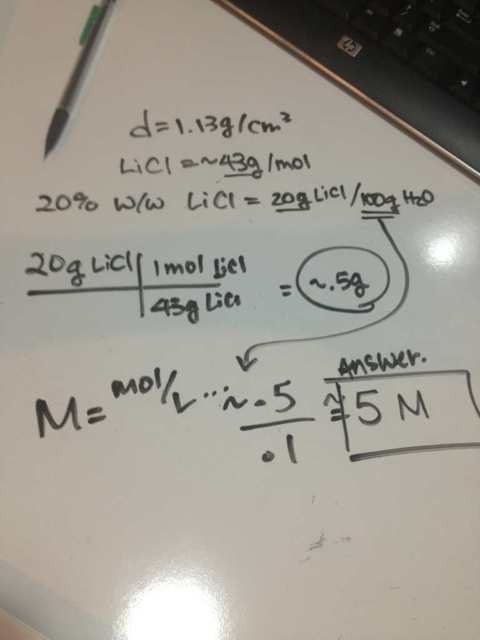 hp
d=1.13g/cm³
LiCl = ~43g/mol
20% w/w LiCl = 20g LiCl/100g H₂O
20g LiCl | 1mol LiCl
43g LiCl
= ~.5g
Answer.
M= mol/L ...~ .5 ≈ 5 M
.1